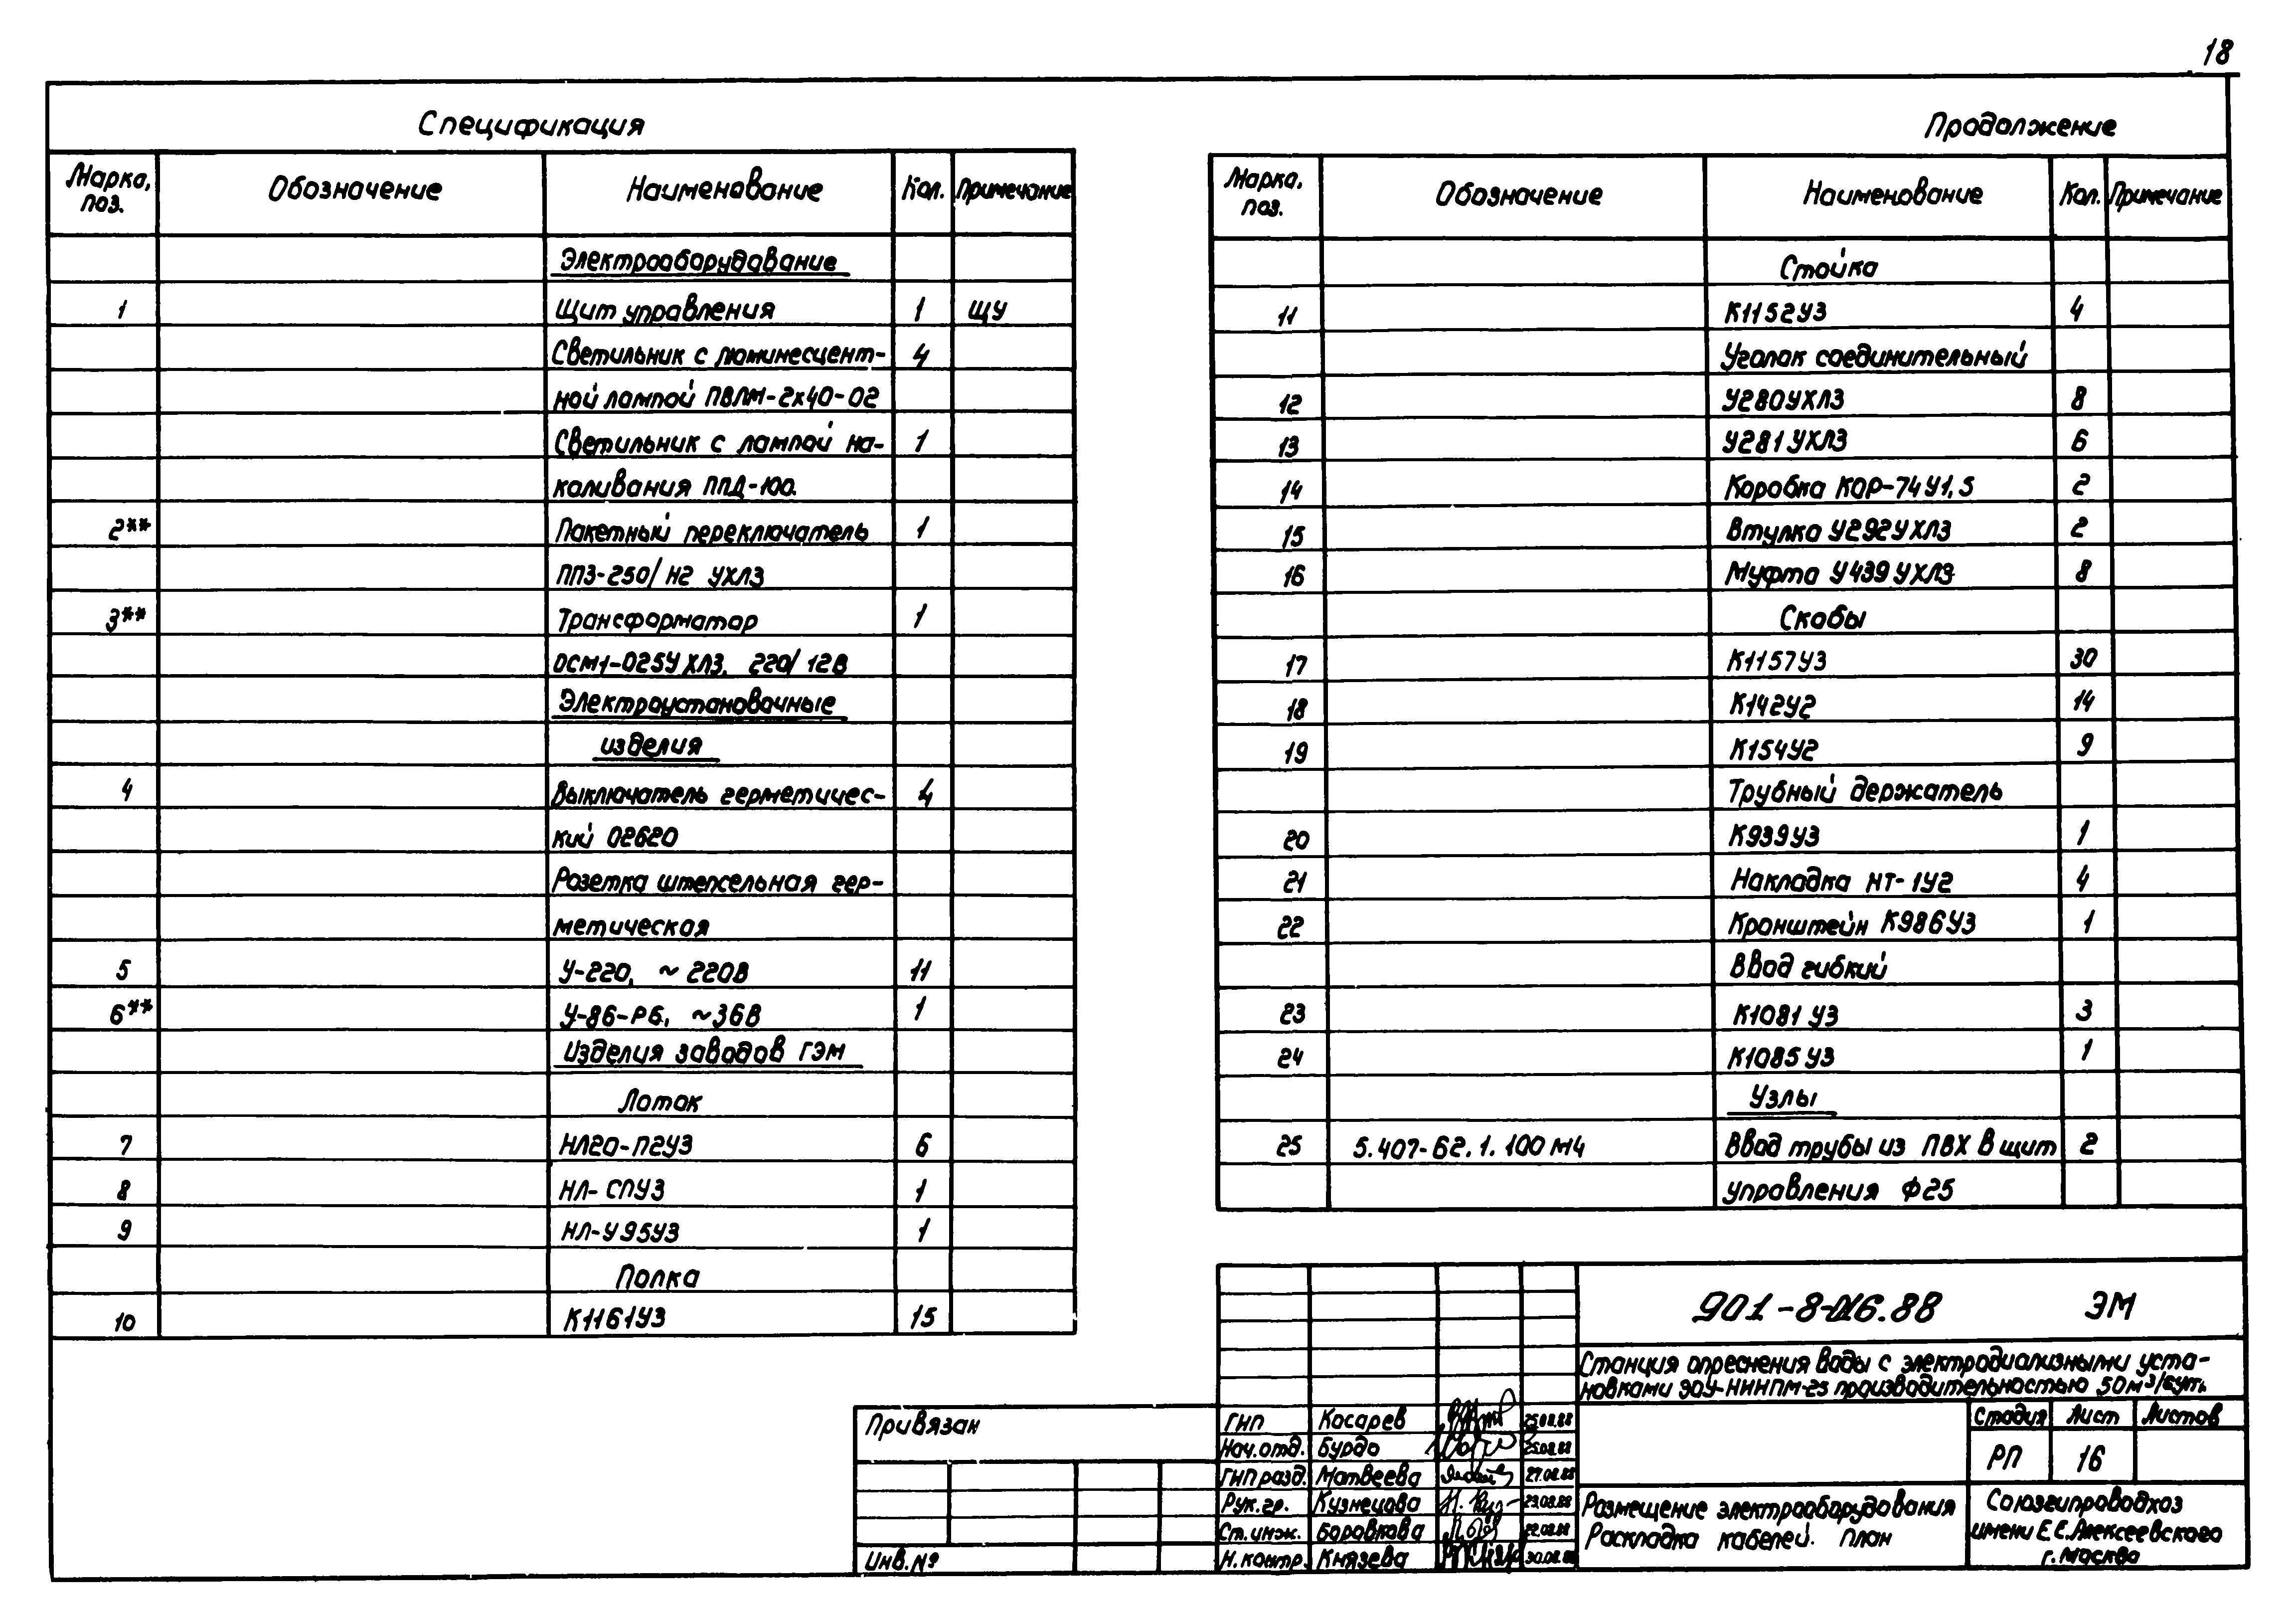 18
Спецификация
Марка, поз. Обозначение Наименование Кол. Примечание
Электрооборудование
1 Щит управления 1 ЩУ
Светильник с люминесцент- 4
ной лампой ПВЛМ-2х40-02
Светильник с лампой на- 1
каливания ППД-100.
2** Пакетный переключатель 1
ПП3-250/Н2 УХЛ3
3** Трансформатор 1
ОСМ1-025УХЛ3, 220/12В
Электроустановочные
изделия
4 Выключатель герметичес- 4
кий 02620
Розетка штепсельная гер-
метическая
5 У-220, ~220В 11
6** У-86-РБ, ~36В 1
Изделия заводов ГЭМ
Лоток
7 НЛ20-П2У3 6
8 НЛ-СПУ3 1
9 НЛ-У95У3 1
Полка
10 К1161У3 15
Продолжение
Марка, поз. Обозначение Наименование Кол. Примечание
Стойка
11 К1152У3 4
Уголок соединительный
12 У280УХЛ3 8
13 У281УХЛ3 6
14 Коробка КОР-74У1,5 2
15 Втулка У292УХЛ3 2
16 Муфта У439УХЛ3 8
Скобы
17 К1157У3 30
18 К142У2 14
19 К154У2 9
Трубный держатель
20 К939У3 1
21 Накладка НТ-1У2 4
22 Кронштейн К986У3 1
Ввод гибкий
23 К1081У3 3
24 К1085У3 1
Узлы
25 5.407-62.1.100М4 Ввод трубы из ПВХ в щит 2
управления Ф25
901-8-016.88 ЭМ
Станция опреснения воды с электродиализными уста-
новками ЭОУ-НИИПМ-25 производительностью 50м³/сут.
Стадия Лист Листов
РП 16
Размещение электрооборудования
Раскладка кабелей. План
Союзгипроводхоз
имени Е.Е.Алексеевского
г. Москва
Привязан
Инв.№
ГИП Косарев 25.08.88
Нач.отд. Бурдо 25.08.88
ГИП разд. Матвеева 27.08.88
Рук.гр. Кузнецова 23.08.88
Ст.инж. Боровкова 22.08.88
Н.контр. Князева 30.08.88